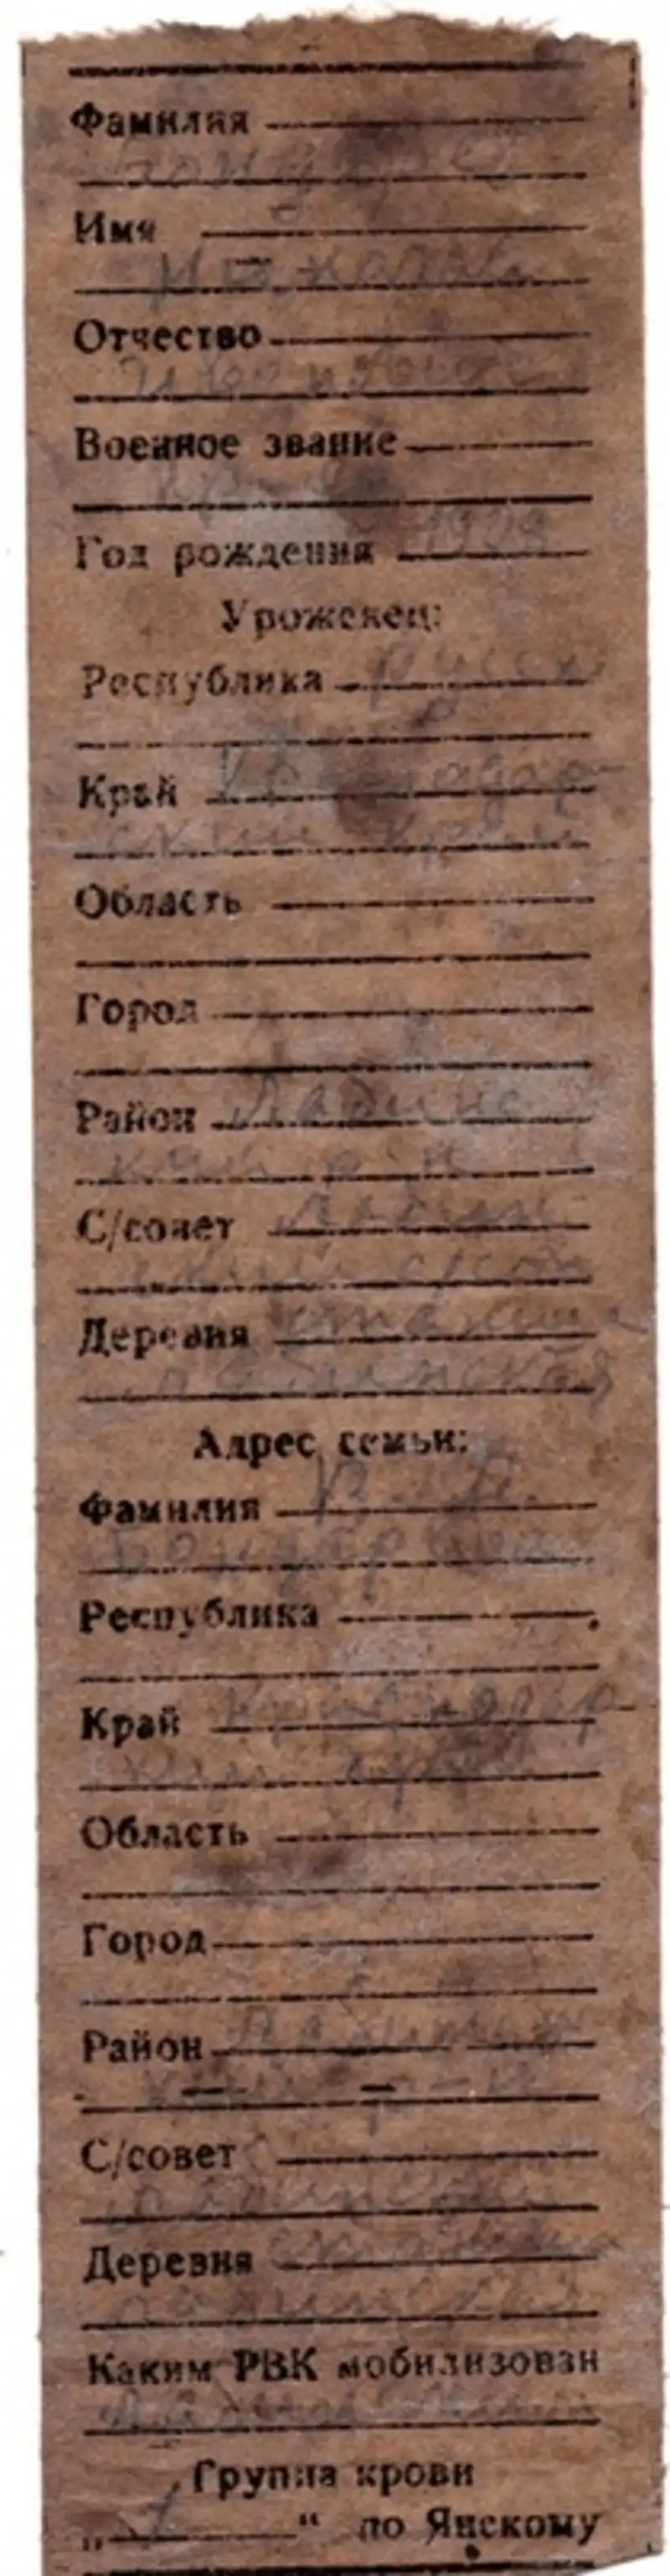 Фамилия
Бондарев
Имя
Николай
Отчество
Военное звание
Год рождения 19
Уроженец:
Республика русск
Край Краснодар-
ский край
Область
Город
Район Лабинс
кий р-н
С/совет Лабин
ский с/сов
Деревня станица
лабинская
Адрес семьи:
Фамилия
Бондарева
Республика
Край Краснодар-
кий край
Область
Город
Район Лабинск
кий р-н
С/совет
Лабинский
Деревня станица
лабинская
Каким РВК мобилизован
Лабинским
Группа крови
„ “ по Янскому